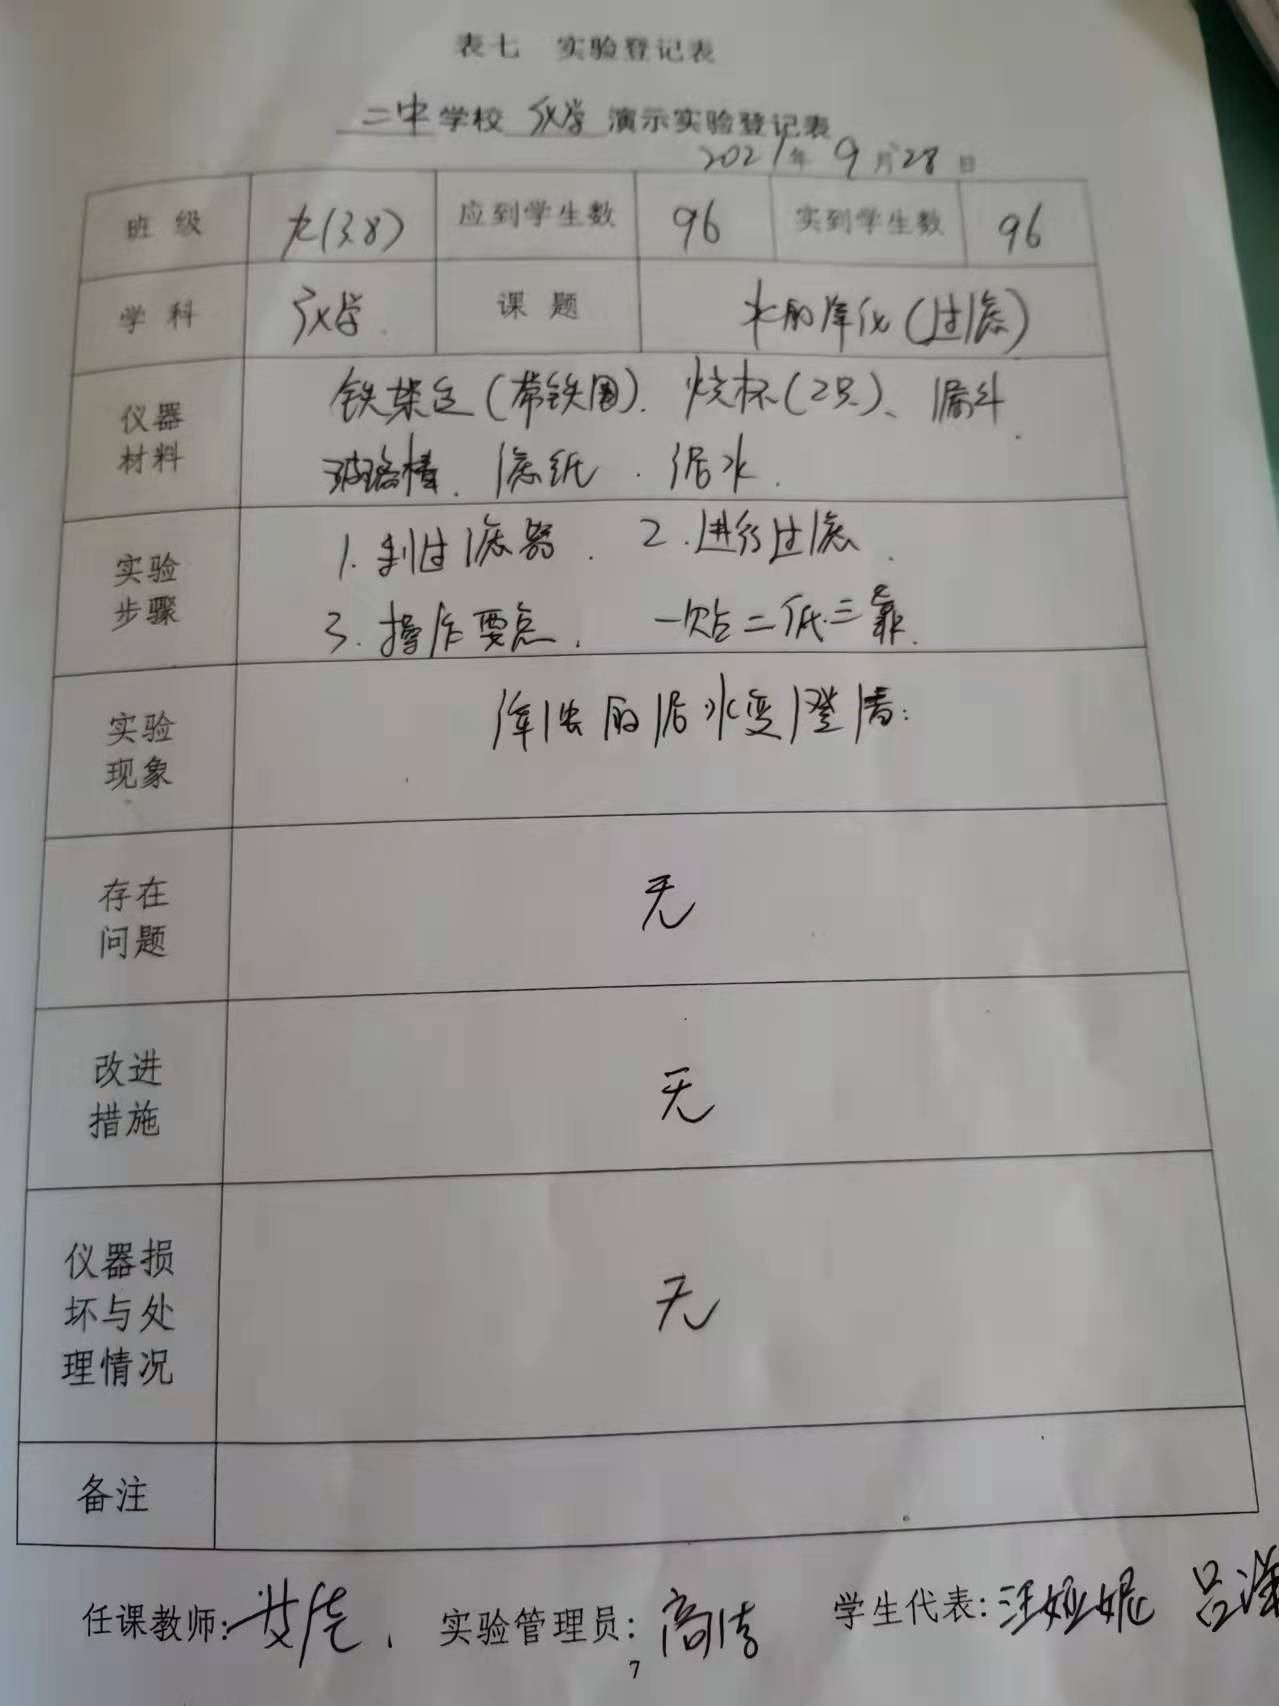 表七 实验登记表
二中学校 化学 演示实验登记表
2021年9月28日
班级 九(3.8) 应到学生数 96 实到学生数 96
学科 化学 课题 水的净化(过滤)
仪器
材料
铁架台(带铁圈)、烧杯(2只)、漏斗
玻璃棒、滤纸、浑水.
实验
步骤
1.制过滤器. 2.进行过滤.
3.操作要点. 一贴二低三靠.
实验
现象
浑浊的浑水变澄清.
存在
问题
无
改进
措施
无
仪器损
坏与处
理情况
无
备注
任课教师: 实验管理员: 学生代表:汪娅妮 吕
7